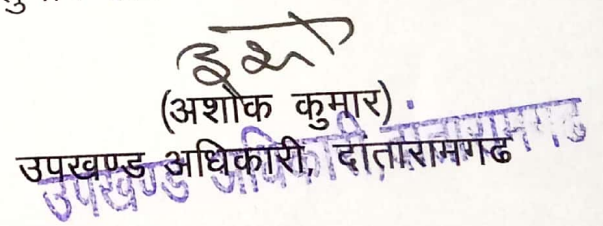 (अशोक कुमार)
उपखण्ड अधिकारी, दांतारामगढ
उपखण्ड अधिकारी, दातारामगढ